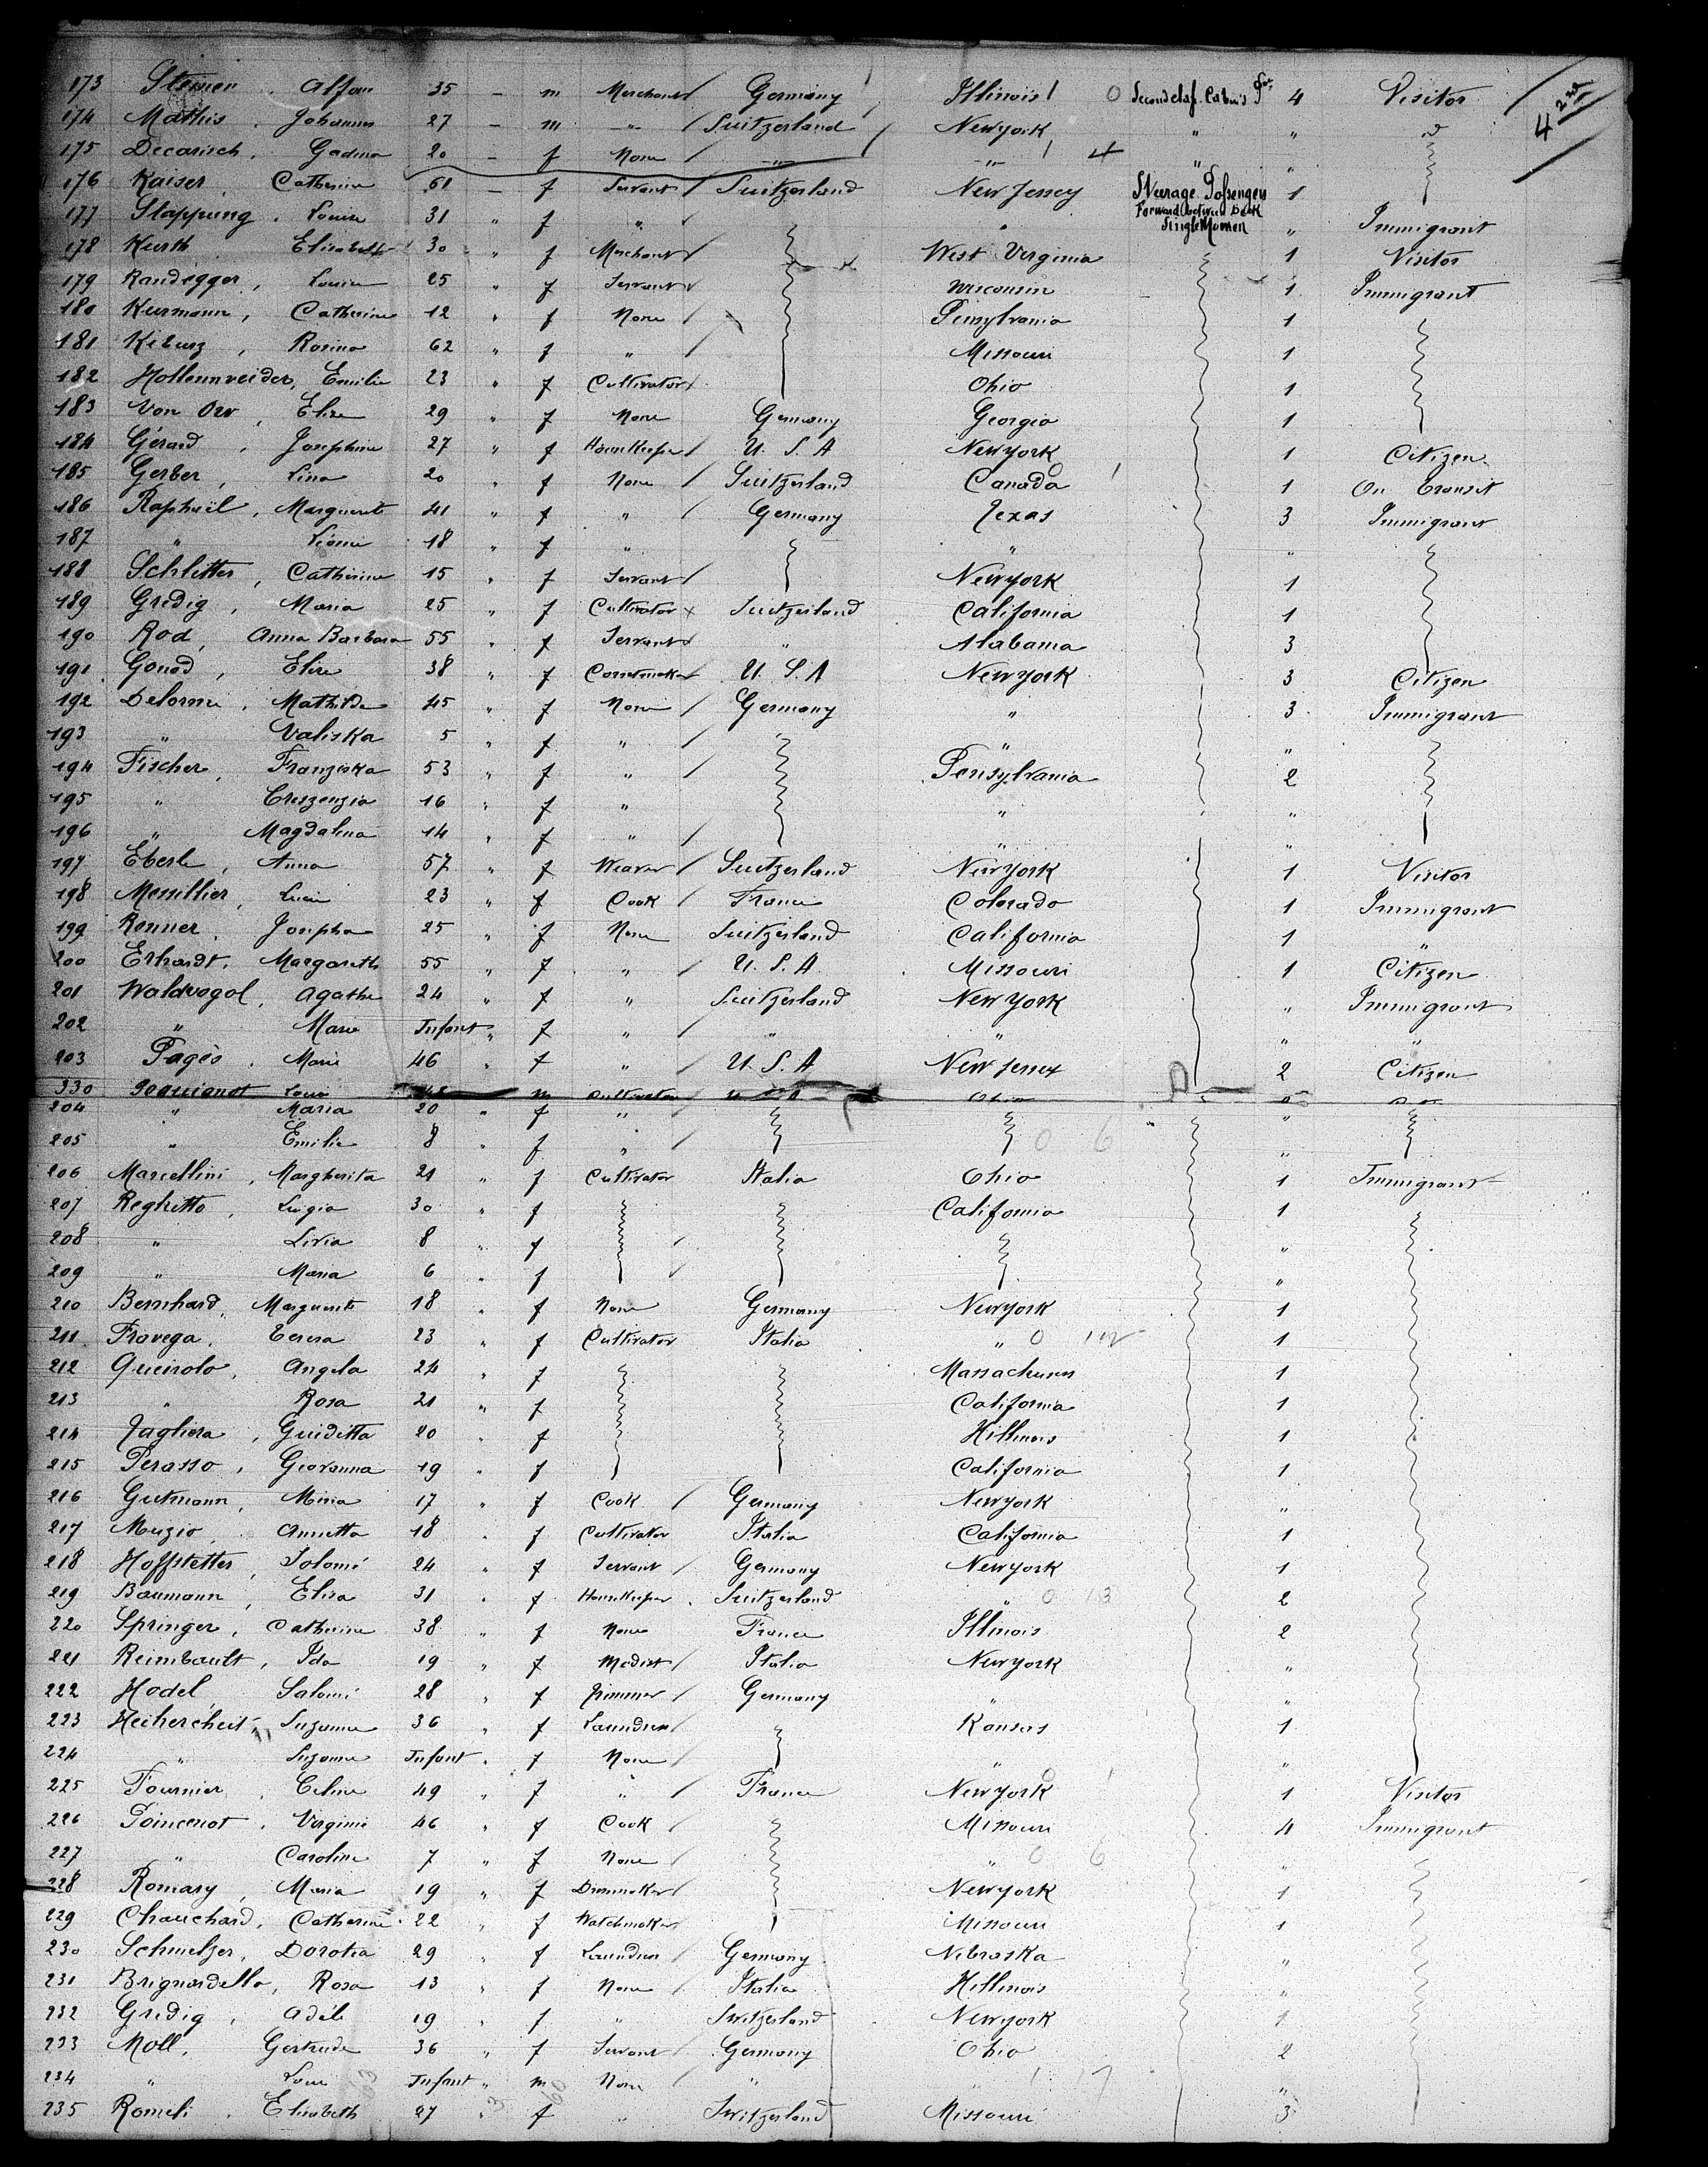 4 2nd
173 Steinen, Alfon 35 - m Merchant Germany Illinois 0 Second class Cabins 4 Visitor
174 Mathis, Johannes 27 - m -"- Suitzerland Newyork " " "
175 Decarisch, Gadina 20 - f None -"- -"- 1 4 " "
176 Kaiser, Catherine 51 - f Servant Suitzerland New Jersey Steerage Passengers 1
177 Stapping, Louise 31 " f " " Forward between Deck Single Women " Immigrant
178 Kurth Elisabeth 30 " f Merchant West Virginia 1 Visitor
179 Randegger, Louise 25 " f Servant Wisconsin 1 Immigrant
180 Kurmann, Catherine 12 " f None Pensylvania 1
181 Kiburz, Rosina 62 " f " Missouri 1
182 Hollenweider, Emilie 23 " f Cultivator Ohio 1
183 Von Ow, Elise 29 " f None Germany Georgia 1
184 Gérard, Josephine 27 " f HouseKeeper U. S. A Newyork 1 Citizen
185 Gerber, Lina 20 " f None Suitzerland Canada 1 On transit
186 Raphaël, Marguerite 41 " f " Germany Texas 3 Immigrant
187 " Léonie 18 " f " " "
188 Schlitter, Catherine 15 " f Servant Newyork 1
189 Gredig, Maria 25 " f Cultivator Suitzerland California 1
190 Rod, Anna Barbara 55 " f Servant " Alabama 3
191 Gonod, Elise 38 " f Corsetmaker U. S. A Newyork 3 Citizen
192 Delorme, Mathilde 45 " f None Germany " 3 Immigrant
193 " Valiska 5 " f " " "
194 Fischer, Franziska 53 " f " Pensylvania 2
195 " Creszenzia 16 " f " " "
196 " Magdalena 14 " f " " "
197 Eberle, Anna 57 " f Weaver Suitzerland Newyork 1 Visitor
198 Messillier, Lucie 23 " f Cook France Colorado 1 Immigrant
199 Renner, Josepha 25 " f None Suitzerland California 1 "
200 Erhardt, Margareth 55 " f " U. S. A Missouri 1 Citizen
201 Waldvogel, Agathe 24 " f " Suitzerland New York " Immigrant
202 " Marie Infant " f " " " " "
203 Pagès, Marie 46 " f " U. S. A New Jersey 2 Citizen
330 Jequignot Louis 48 m Cultivator U S A Ohio
204 " Maria 20 " f " "
205 " Emilie 8 " f " 0 6 "
206 Marcellini, Margherita 21 " f Cultivator Italia Ohio 1 Immigrant
207 Reghitto, Luigia 30 " f California 1
208 " Livia 8 " f "
209 " Maria 6 " f "
210 Bernhard, Marguerite 18 " f None Germany Newyork 1
211 Fravega, Teresa 23 " f Cultivator Italia " 0 1
212 Queirolo, Angela 24 " f Massachuses 1
213 " Rosa 21 " f California 1
214 Tagliera, Guiditta 20 " f Hillinois 1
215 Perasso, Giovanna 19 " f California 1
216 Gutmann, Mina 17 " f Cook Germany Newyork "
217 Muzio, Annetta 18 " f Cultivator Italia California 1
218 Hoffstetter, Solomé 24 " f Servant Germany Newyork 1
219 Baumann, Elisa 31 " f HouseKeeper Suitzerland " 0 13 2
220 Springer, Catherine 38 " f None France Illinois 2
221 Reimbault, Ida 19 " f Modist Italia Newyork "
222 Hodel, Salomé 28 " f Trimmer Germany " "
223 Heihercheit, Suzanne 36 " f Laundress " Kansas 1
224 " Suzanne Infant " f None " "
225 Fournier, Celine 49 " f " France Newyork 1 Visitor
226 Poincenot, Virginie 46 " f Cook Missouri 4 Immigrant
227 " Caroline 7 " f None " 0 6 "
228 Romary, Maria 19 " f Dressmaker Newyork 1
229 Chauchard, Catherine 22 " f Watchmaker Missouri 1
230 Schmelzer, Dorotea 29 " f Laundress Germany Nebraska "
231 Brignardello, Rosa 13 " f None Italia Hillinois "
232 Gredig, Adèle 19 " f " Switzerland Newyork 1
233 Moll, Gertrude 36 " f Servant Germany Ohio 2
234 " Louis Infant " m None " " 1 7 "
235 Romeli, Elisabeth 27 " f " Switzerland Missouri 3
63 3 60